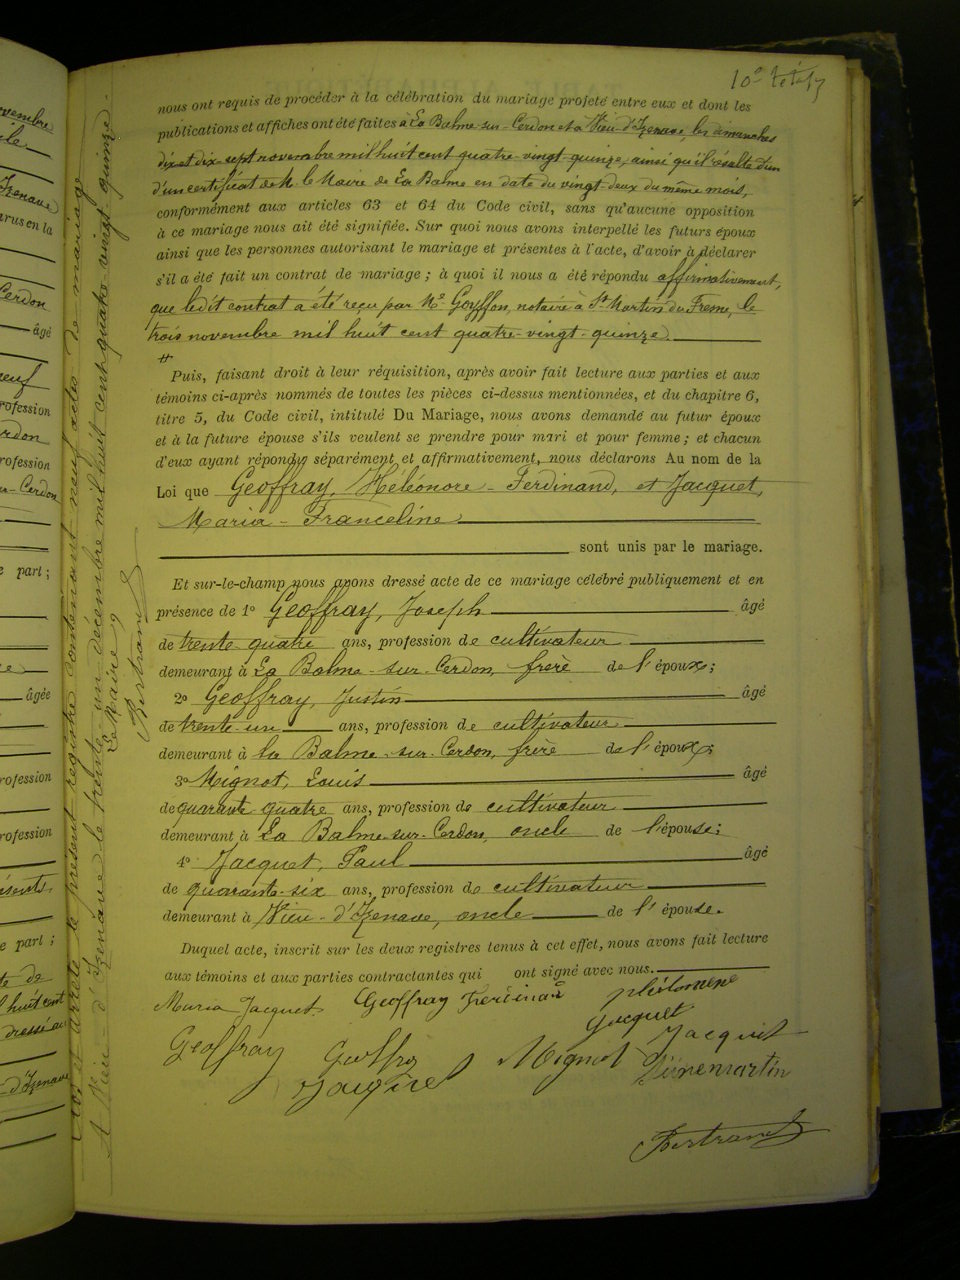 10e
nous ont requis de procéder à la célébration du mariage projeté entre eux et dont les
publications et affiches ont été faites à La Balme-sur-Cerdon et à Vieu-d'Izenave, les dimanches
dix et dix-sept novembre mil huit cent quatre-vingt-quinze, ainsi qu'il résulte d'un
d'un certificat de M. le Maire de La Balme en date du vingt-deux du même mois,
conformément aux articles 63 et 64 du Code civil, sans qu'aucune opposition
à ce mariage nous ait été signifiée. Sur quoi nous avons interpellé les futurs époux
ainsi que les personnes autorisant le mariage et présentes à l'acte, d'avoir à déclarer
s'il a été fait un contrat de mariage ; à quoi il nous a été répondu affirmativement,
que ledit contrat a été reçu par Me Goyffon, notaire à St Martin du Fresne, le
trois novembre mil huit cent quatre-vingt-quinze.
Puis, faisant droit à leur réquisition, après avoir fait lecture aux parties et aux
témoins ci-après nommés de toutes les pièces ci-dessus mentionnées, et du chapitre 6,
titre 5, du Code civil, intitulé Du Mariage, nous avons demandé au futur époux
et à la future épouse s'ils veulent se prendre pour mari et pour femme ; et chacun
d'eux ayant répondu séparément et affirmativement, nous déclarons Au nom de la
Loi que Geoffray, Héléonore-Ferdinand, et Jacquet,
Maria-Franceline
sont unis par le mariage.
Et sur-le-champ nous avons dressé acte de ce mariage célébré publiquement et en
présence de 1o Geoffray, Joseph âgé
de trente quatre ans, profession de cultivateur
demeurant à La Balme-sur-Cerdon, frère de l'époux ;
2o Geoffray, Justin âgé
de trente-un ans, profession de cultivateur
demeurant à La Balme-sur-Cerdon, frère de l'époux ;
3o Mignot, Louis âgé
de quarante-quatre ans, profession de cultivateur
demeurant à La Balme-sur-Cerdon, oncle de l'épouse ;
4o Jacquet, Paul âgé
de quarante-six ans, profession de cultivateur
demeurant à Vieu-d'Izenave, oncle de l'épouse.
Duquel acte, inscrit sur les deux registres tenus à cet effet, nous avons fait lecture
aux témoins et aux parties contractantes qui ont signé avec nous.
Maria Jacquet Geoffray Ferdinand philomène
Jacquet
Geoffray Geoffray Mignot Jacquet
Jacquet
Bertrand
Clos et arrêté le présent registre contenant neuf actes de mariage
A Vieu-d'Izenave le trente un décembre mil huit cent quatre-vingt-quinze.
Le Maire,
Bertrand
novembre
Izenave
Cerdon
âgé
profession
profession
Cerdon
e part ;
âgée
profession
profession
e part ;
huit cent
dressé
d'Izenave